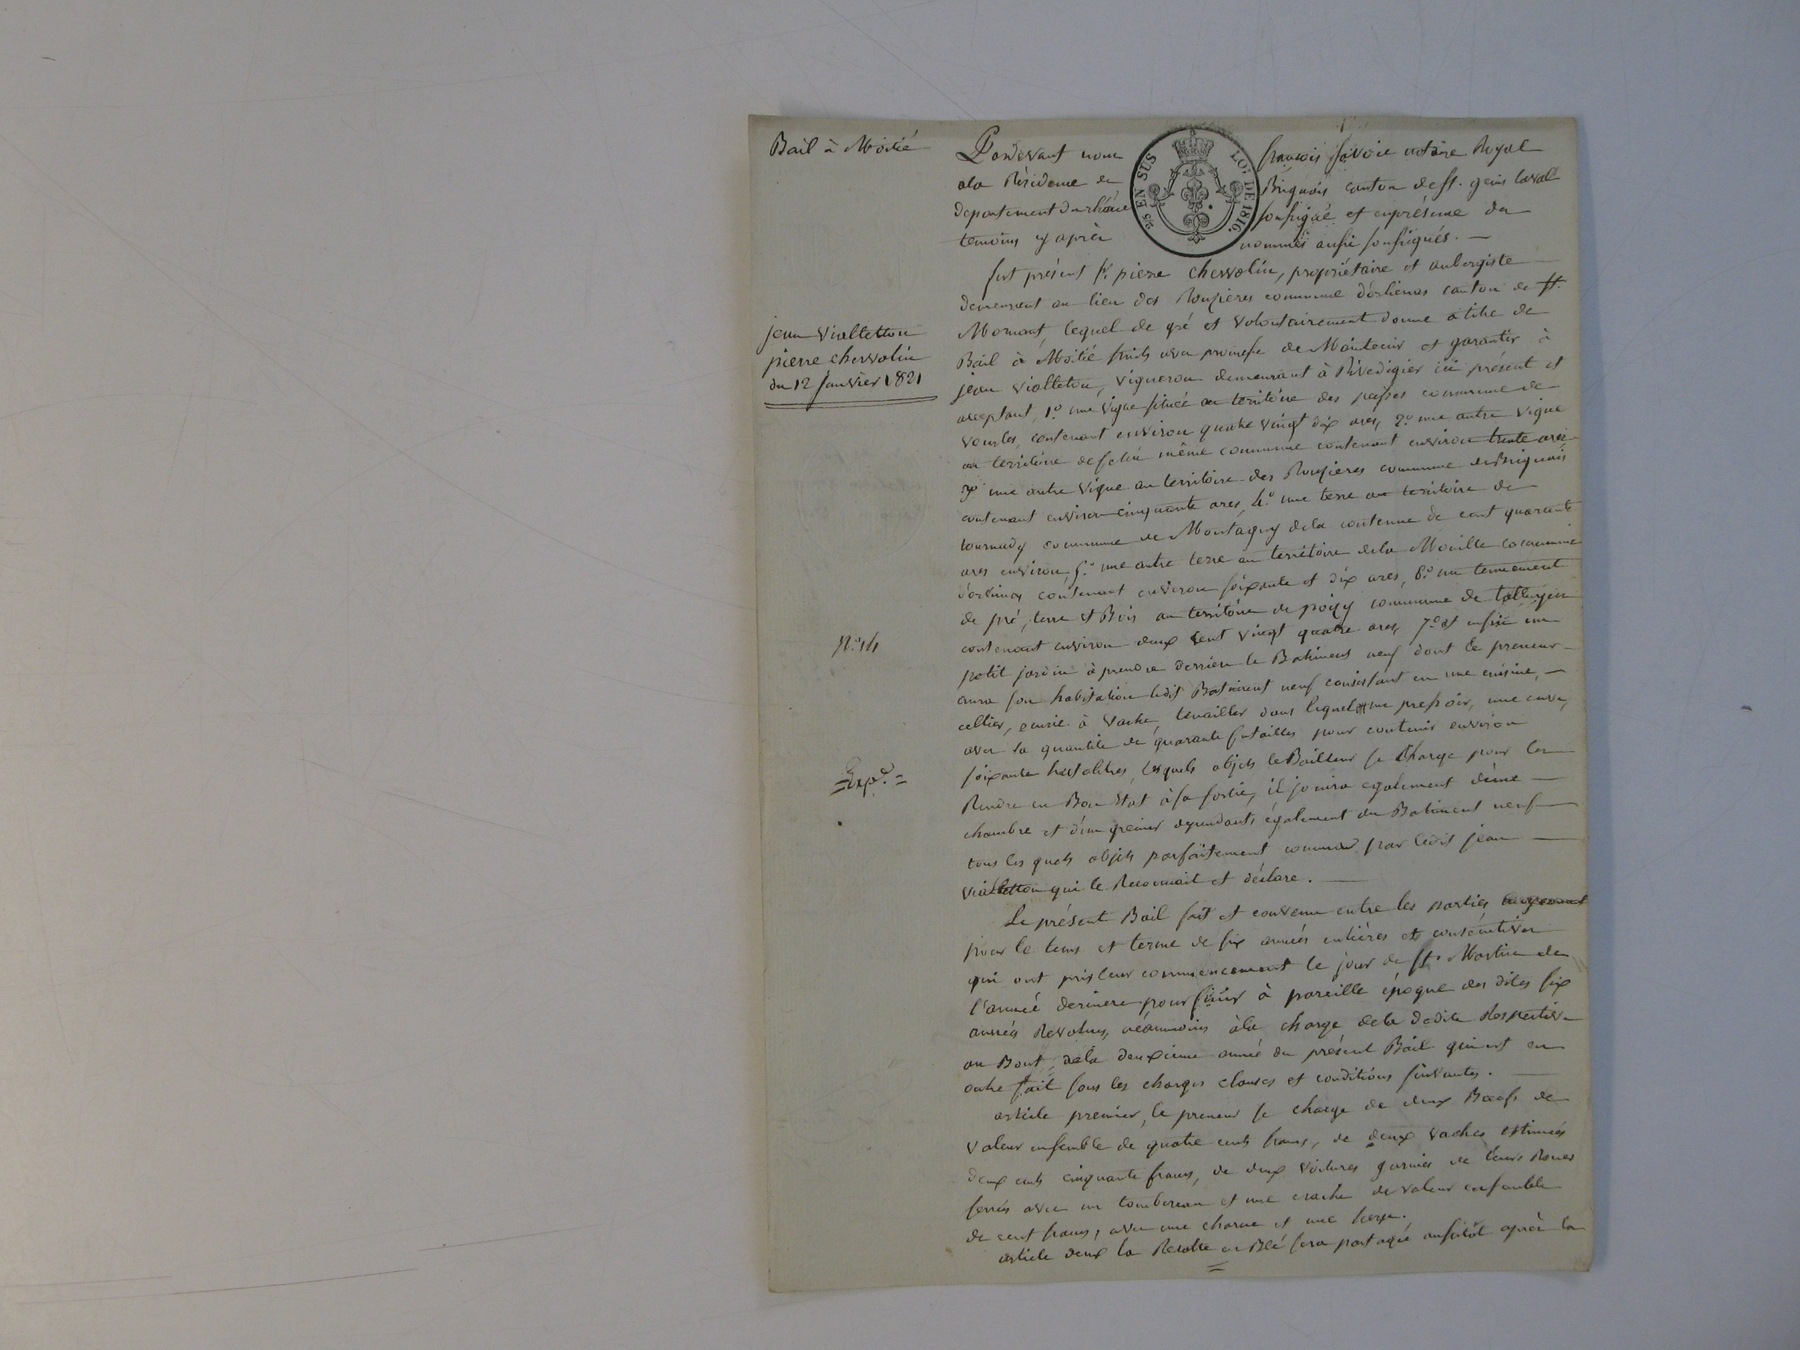 Bail à Moitié
jean violletton
pierre chervolin
du 12 janvier 1821
N.º 14
Exp.é
2/5 EN SUS
LOI DE 1816.
Pardevant nous françois savoie notaire Royal
ala Résidence de Brignais canton de st. genis laval
departement du rhône soussigné et enprésence des
temoins cy après nommés aussi soussignés.
fut présent sr. pierre chervolin, propriétaire et aubergiste
demeurant au lieu des Rouzieres commune d'orlienas canton de
Mornant, lequel de gré et volontairement donne atitre de
Bail à Moitié fruits avec promesse de Maintenir et garantir à
jean violletton, vigneron demeurant à ici présent et
acceptant, 1.º une vigne située au territoire des passes commune de
vourles, contenant environ quatre vingt dix ares, 2.º une autre vigne
au territoire de même commune contenant environ trente ares
3.º une autre vigne au territoire des Rouzieres commune de Brignais
contenant environ cinquante ares, 4.º une terre au territoire de
commune de Montagny dela contenue de cent quarante
ares environ, 5.º une autre terre au territoire dela Mouille commune
d'orlienas contenant environ soixante et dix ares, 6.º un tennement
de pré, terre et Bois au territoire de commune de
contenant environ deux cent vingt quatre ares, 7.º et enfin un
petit jardin à prendre derriere le Batiment neuf dont le preneur
aura son habitation ledit Batiment neuf consistant en une cuisine,
cellier, ecurie à vache, tenailler dans lequel un pressoir, une cuve,
avec la quantité de quarante futailles pour contenir environ
soixante hectolitres, lesquels objets le Bailleur se charge pour les
Rendre en Bon Etat à sa sortie, il jouira egalement d'une
chambre et d'un grenier dependants également du Batiment neuf
tous les quels objets parfaitement connus par ledit jean
violletton qui le Reconnait et déclare.
Le présent Bail fait et convenu entre les parties
pour le tems et terme de six années entières et consécutives
qui ont pris leur commencement le jour de st. Martin de
l'année derniere, pour finir à pareille époque des dites six
années Révolues, néanmoins àla charge dela dedite Respective
au Bout dela deuxieme année du présent Bail qui est en
outre fait sous les charges clauses et conditions suivantes.
article premier, le preneur se charge de deux Bœufs de
valeur ensemble de quatre cents francs, de deux vaches estimées
deux cents cinquante francs, de deux voitures garnies de leurs Roues
ferrées avec un tombereau et une de valeur ensemble
de cent francs, avec une charue et une herse.
article deux la Récolte en Blé sera partagée aussitôt après la